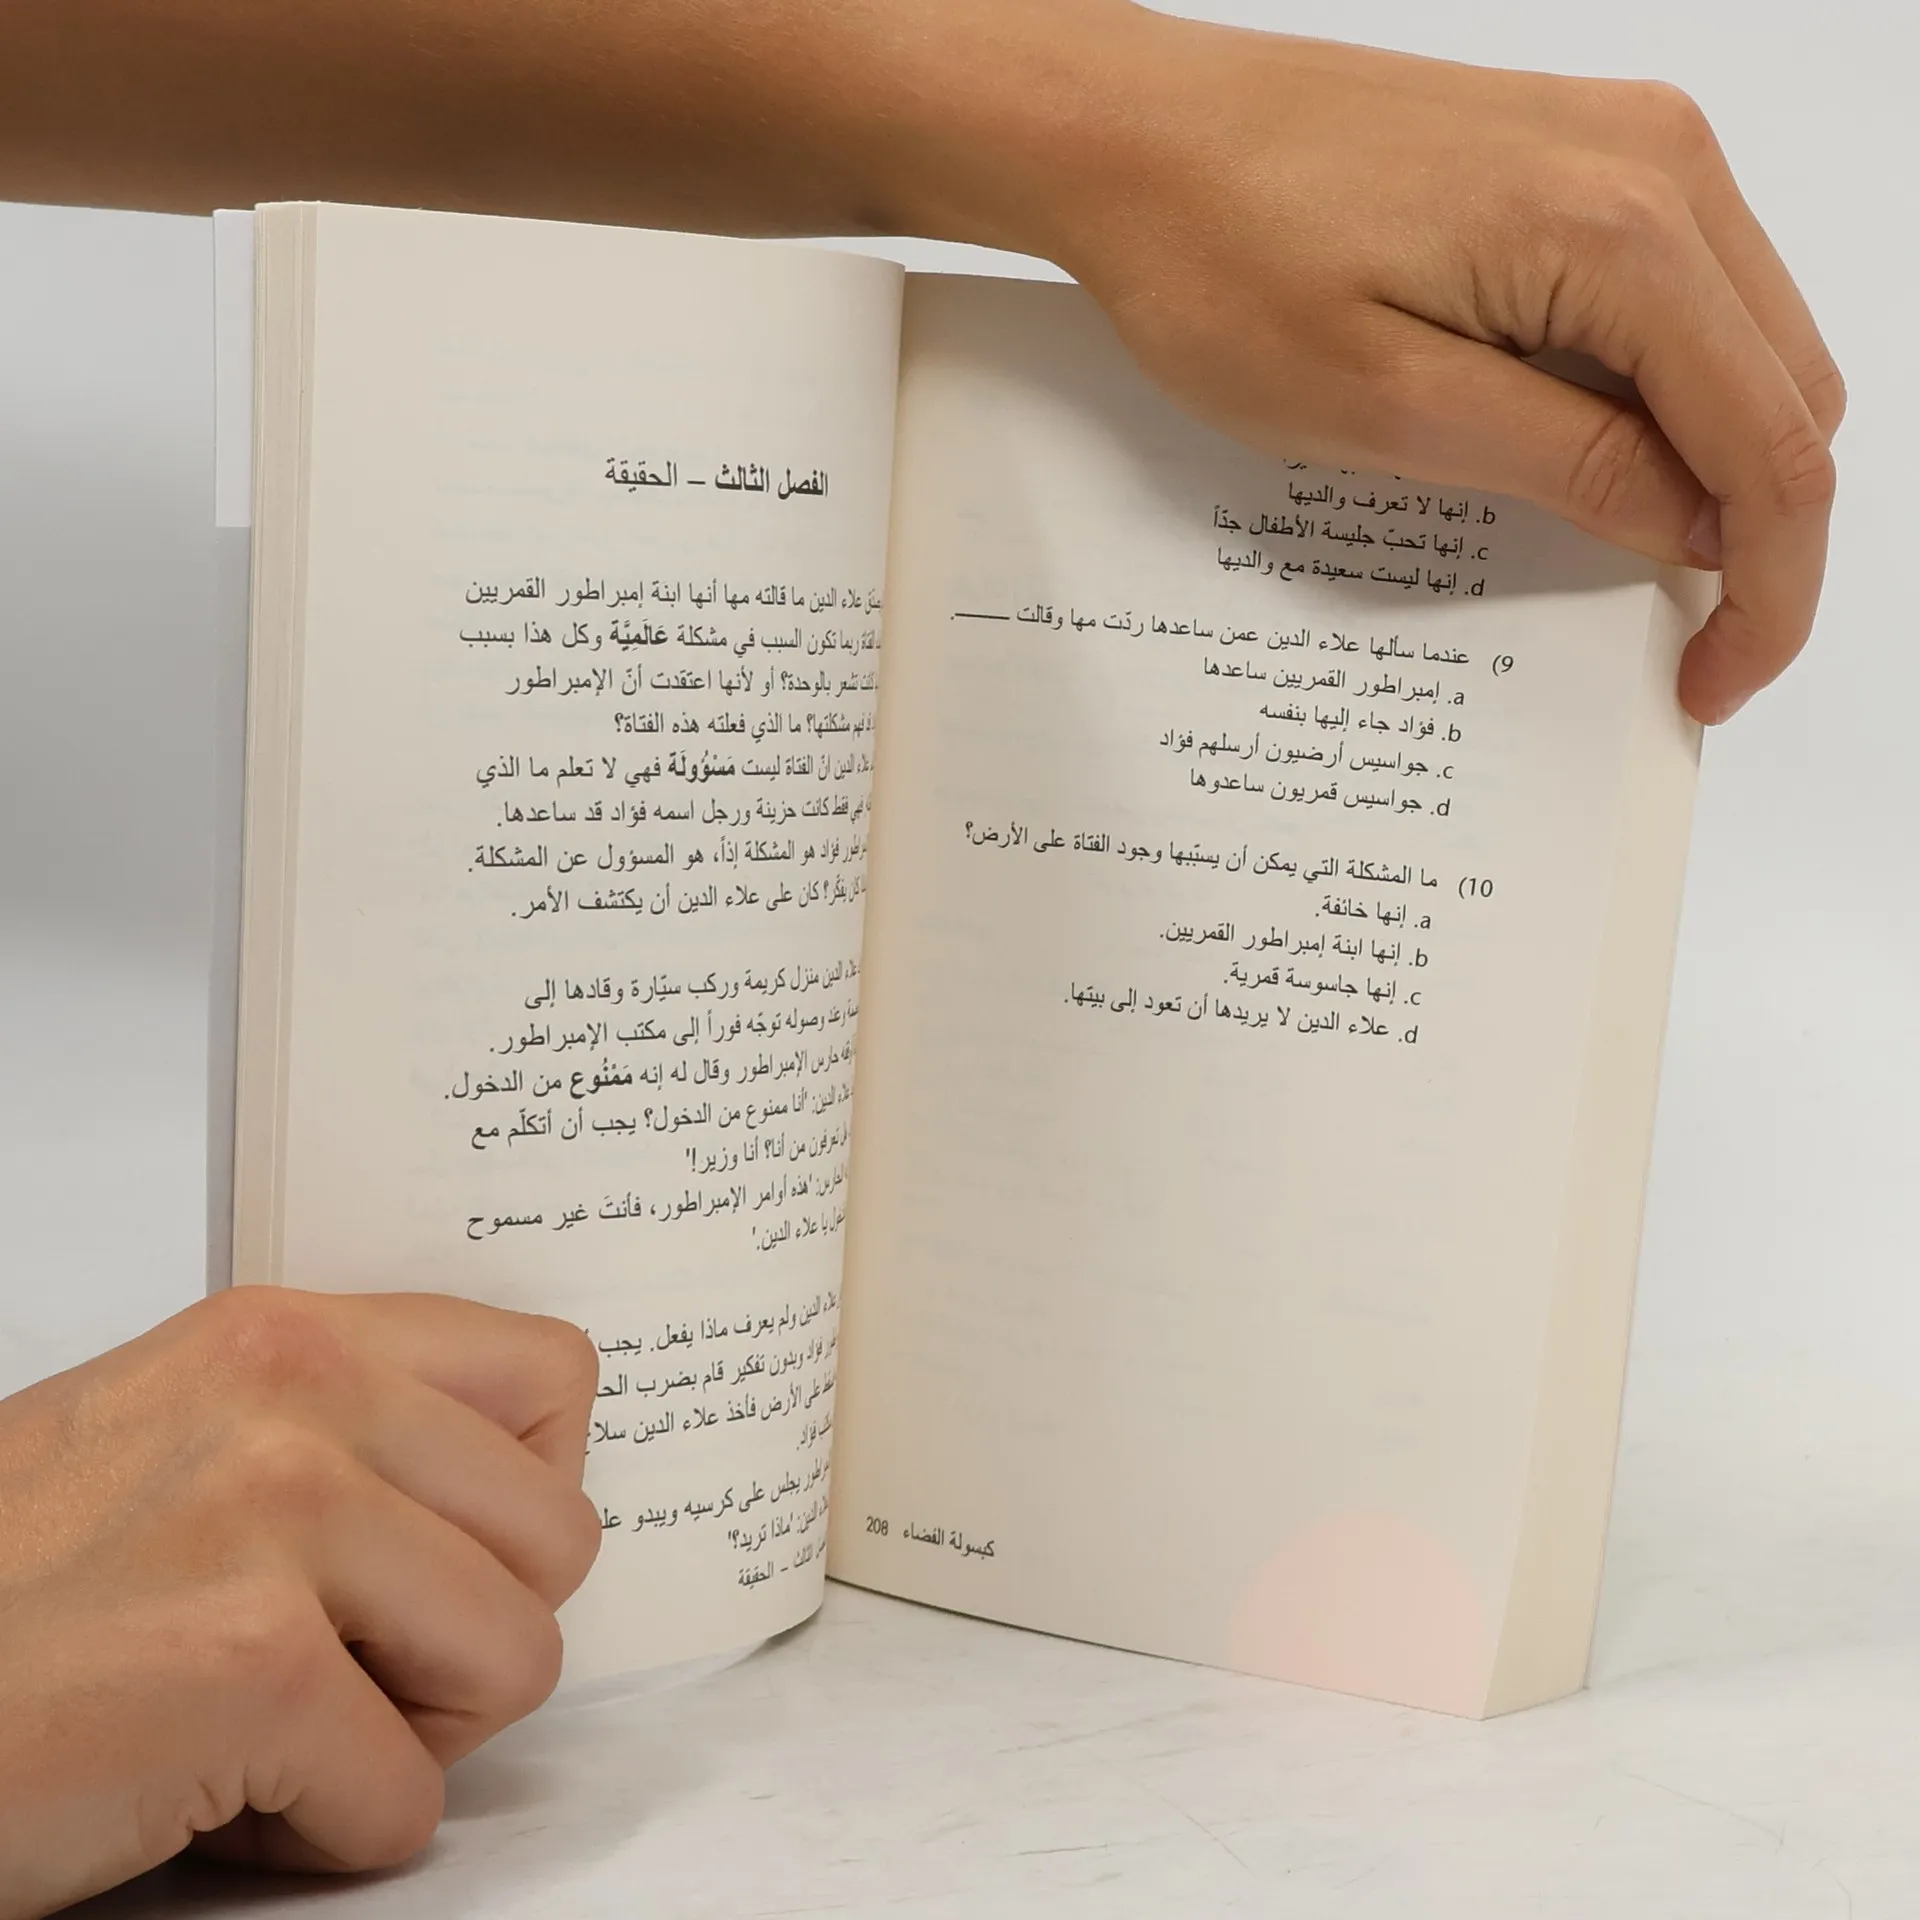 b. إنها لا تعرف والديها
c. إنها تحبّ جليسة الأطفال جدّاً
d. إنها ليست سعيدة مع والديها
9) عندما سألها علاء الدين عمن ساعدها ردّت مها وقالت ـــــــــ.
a. إمبراطور القمريين ساعدها
b. فؤاد جاء إليها بنفسه
c. جواسيس أرضيون أرسلهم فؤاد
d. جواسيس قمريون ساعدوها
10) ما المشكلة التي يمكن أن يسبّبها وجود الفتاة على الأرض؟
a. إنها خائفة.
b. إنها ابنة إمبراطور القمريين.
c. إنها جاسوسة قمرية.
d. علاء الدين لا يريدها أن تعود إلى بيتها.
208 كبسولة الفضاء
الفصل الثالث – الحقيقة
علاء الدين ما قالته مها أنها ابنة إمبراطور القمريين
ربما تكون السبب في مشكلة عَالَمِيَّة وكل هذا بسبب
تشعر بالوحدة؟ أو لأنها اعتقدت أنّ الإمبراطور
مشكلتها؟ ما الذي فعلته هذه الفتاة؟
علاء الدين انّ الفتاة ليست مَسْؤُولَة فهي لا تعلم ما الذي
فهي فقط كانت حزينة ورجل اسمه فؤاد قد ساعدها.
فؤاد هو المشكلة إذاً، هو المسؤول عن المشكلة.
كان يفكّر؟ كان على علاء الدين أن يكتشف الأمر.
علاء الدين منزل كريمة وركب سيّارة وقادها إلى
وعند وصوله توجّه فوراً إلى مكتب الإمبراطور.
حارس الإمبراطور وقال له إنه مَمْنُوع من الدخول.
علاء الدين: 'أنا ممنوع من الدخول؟ يجب أن أتكلّم مع
تعرفون من أنا؟ أنا وزير!'
الحارس: 'هذه أوامر الإمبراطور، فأنتَ غير مسموح
يا علاء الدين.'
علاء الدين ولم يعرف ماذا يفعل. يجب
فؤاد وبدون تفكير قام بضرب
على الأرض فأخذ علاء الدين
فؤاد.
يجلس على كرسيه ويبدو
الدين: 'ماذا تريد؟'
الثالث – الحقيقة